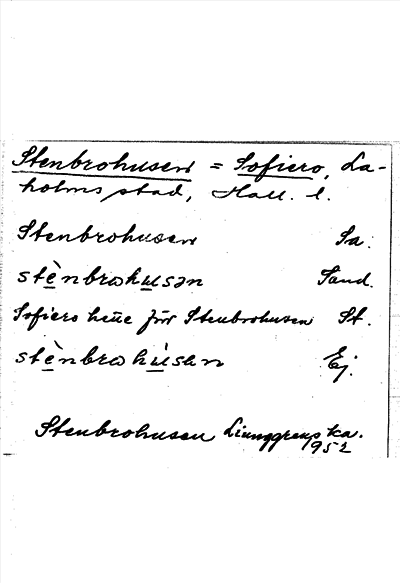 Stenbrohusen = Sofiero, La-
holms stad, Hall. l.
Stenbrohusen Sa.
stènbrωhusən Sand.
Sofiero hette förr Stenbrohusen St.
stènbrωhúsən Ej.
Stenbrohusen Ljunggrens ka.
1952